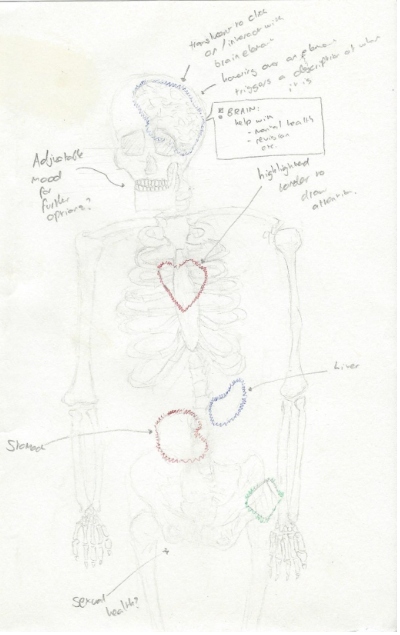 to click
or / interact with
brain element
hovering over an element
triggers a description of what
it is
BRAIN:
help with
- mental health
- revision
etc.
Adjustable
mood
for
further
options?
highlighted
border to
draw
attention.
Liver
Stomach
sexual
health?